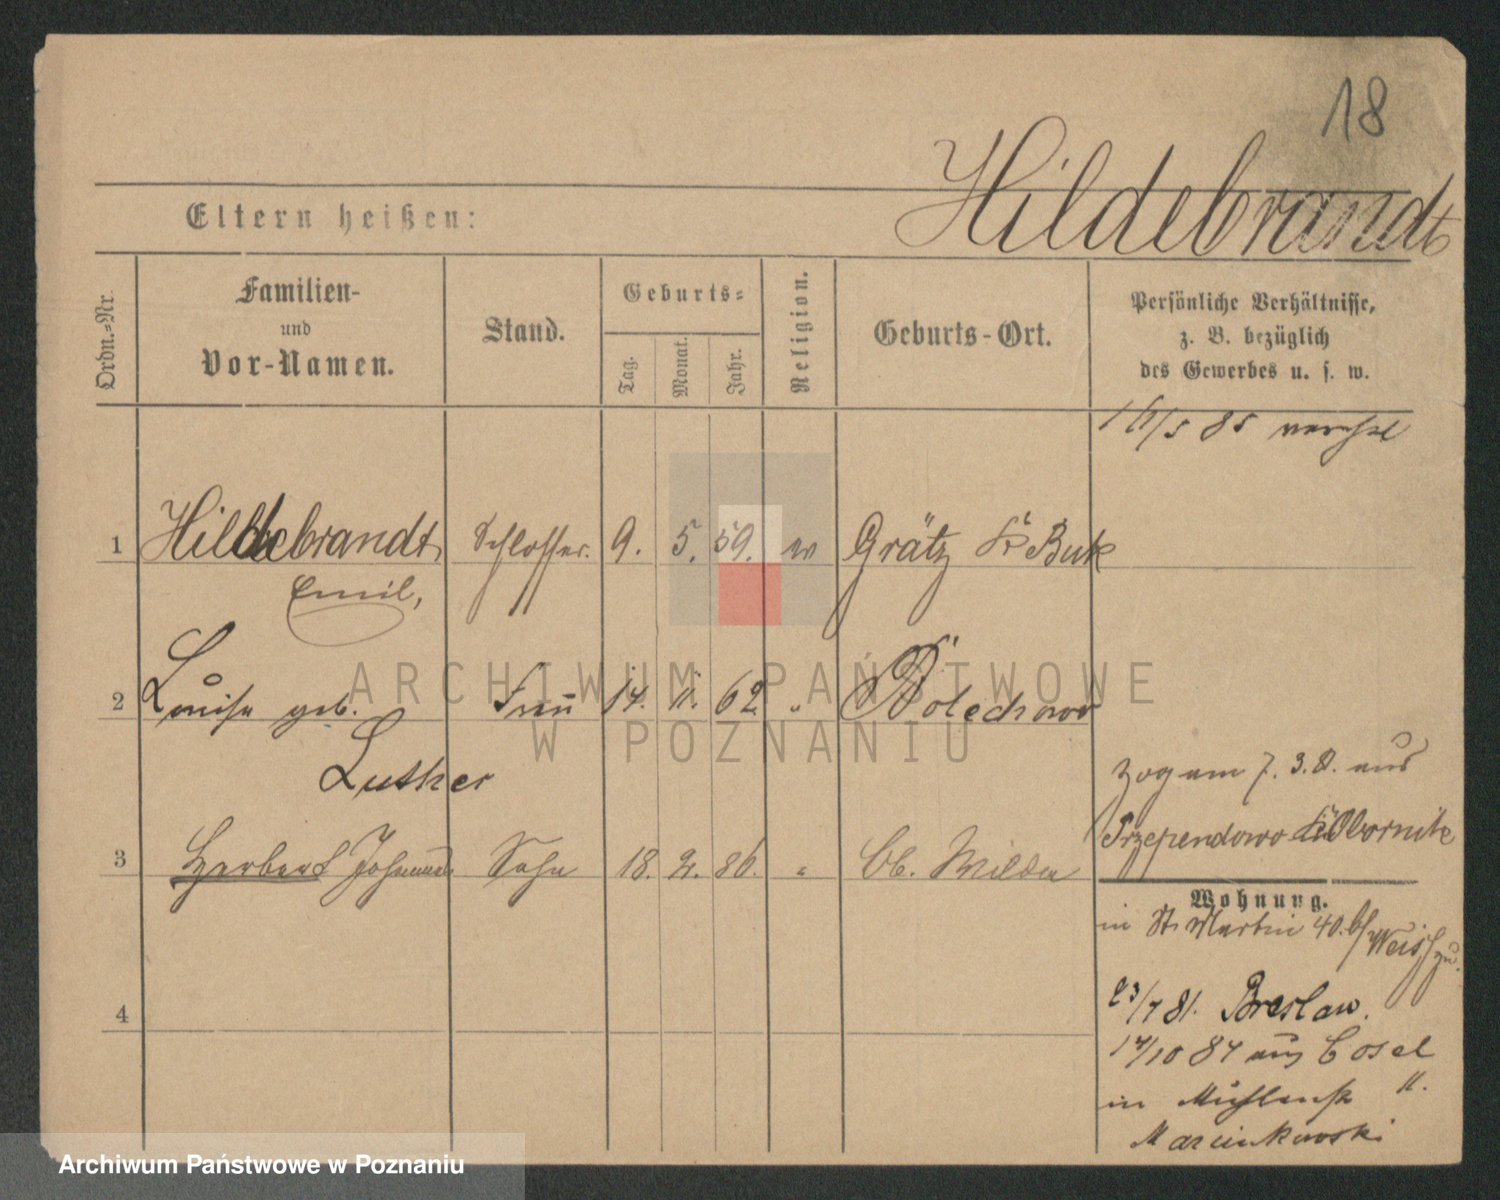 18
Hildebrandt
Eltern heißen:
Ordn.-Nr.
Familien-
und
Vor-Namen.
Stand.
Geburts-
Tag.
Monat.
Jahr.
Religion.
Geburts-Ort.
Persönliche Verhältnisse,
z. B. bezüglich
des Gewerbes u. s. w.
/5 85
1 Hildebrandt Schlosser. 9. 5. 59. Grätz Kr Buk
Emil,
2 Louise geb. Frau 14. 11. 62 "
Luther
zog am 7. 3. 8. aus
Przependowo Kr Obornik
3 Herbert Sohn 18. 2. 86. " Ob. Wilda
Wohnung.
in St. Martin 40. b/ Weiss
23/7 81. Breslau.
4
14/10 84 aus Cosel
in Mühlenstr 11.
Marcinkowski
ARCHIWUM PAŃSTWOWE
W POZNANIU
Archiwum Państwowe w Poznaniu